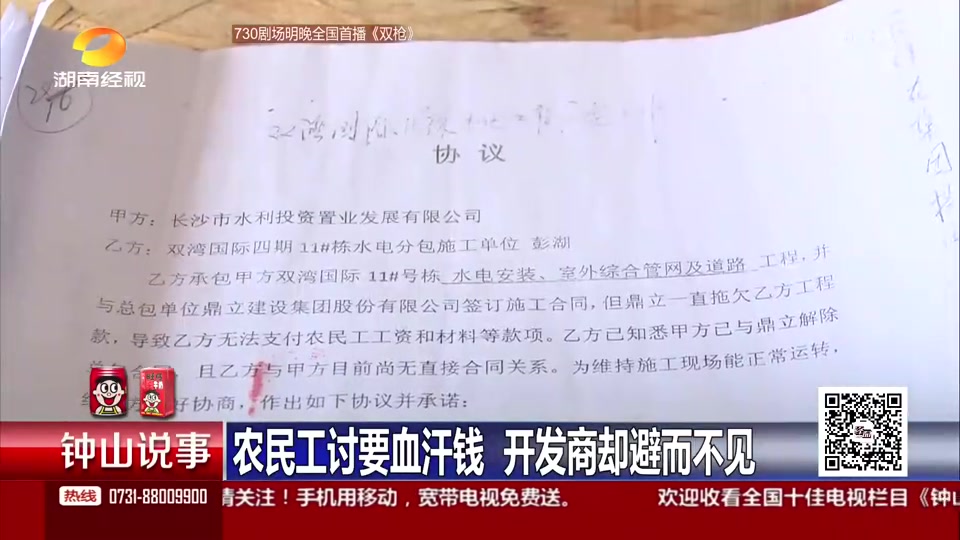 730剧场明晚全国首播《双枪》
湖南经视
协 议
甲方：长沙市水利投资置业发展有限公司
乙方：双湾国际四期11#栋水电分包施工单位 彭湖
乙方承包甲方双湾国际 11#号栋 水电安装、室外综合管网及道路 工程，并
与总包单位鼎立建设集团股份有限公司签订施工合同，但鼎立一直拖欠乙方工程
款，导致乙方无法支付农民工工资和材料等款项。乙方已知悉甲方已与鼎立解除
且乙方与甲方目前尚无直接合同关系。为维持施工现场能正常运转，
好协商，作出如下协议并承诺：
钟山说事
农民工讨要血汗钱 开发商却避而不见
热线 0731-88009900 请关注！手机用移动，宽带电视免费送。 欢迎收看全国十佳电视栏目《钟山